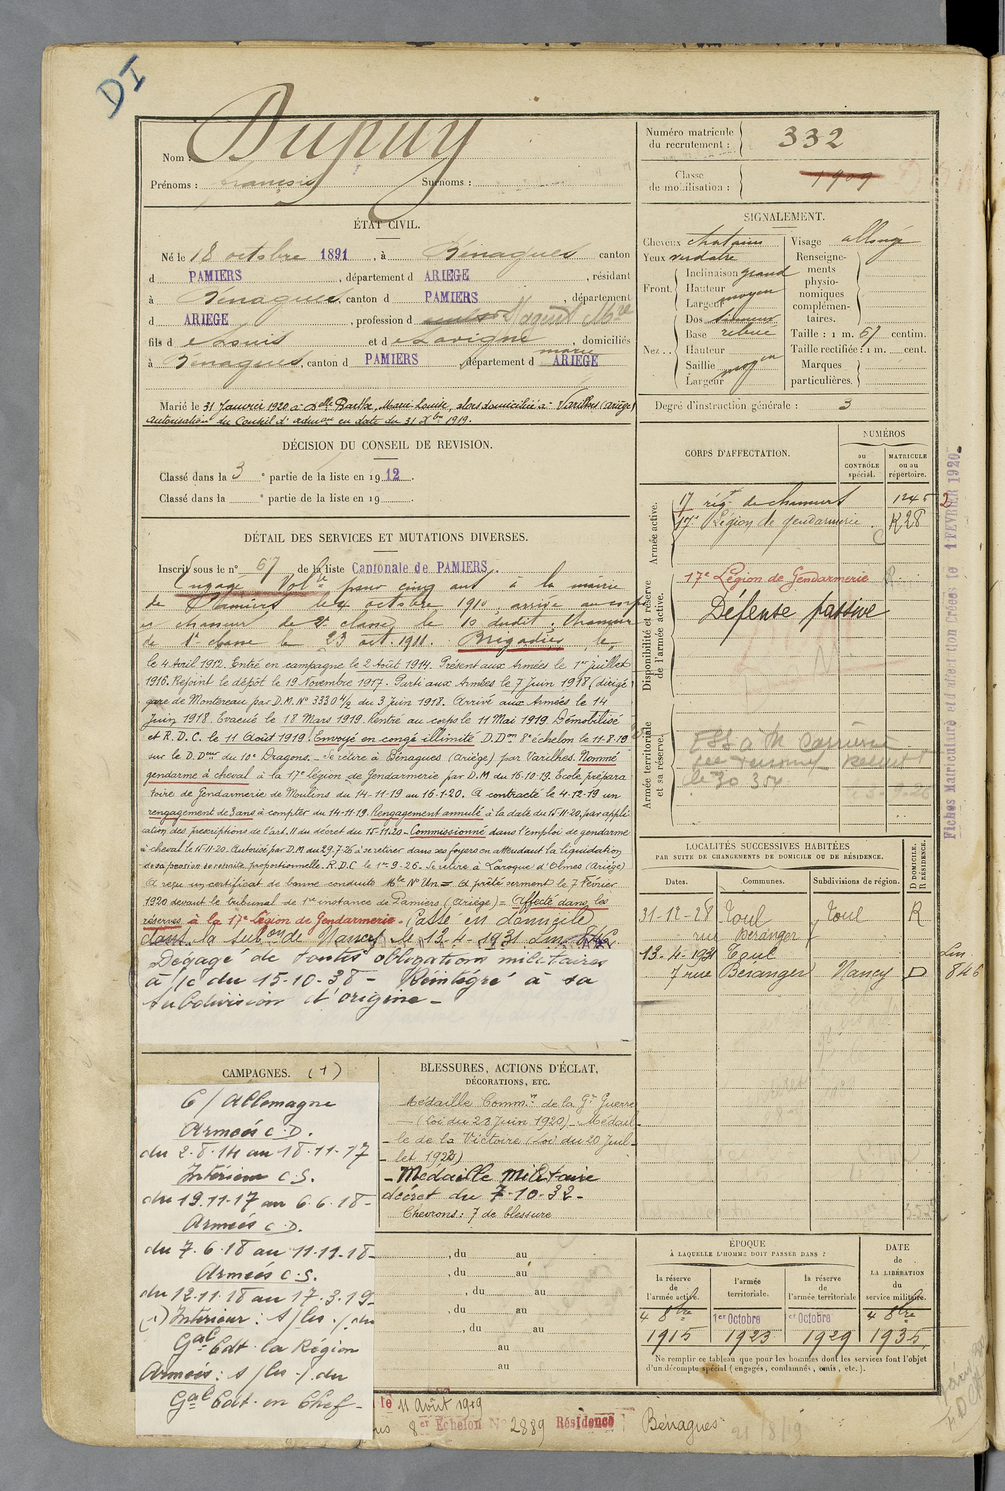 DI
Nom : Dupuy
Prénoms : françois Surnoms :
Numéro matricule du recrutement : 332
Classe de mobilisation : 1909
ÉTAT CIVIL.
Né le 18 octobre 1891, à Bénagues canton
d PAMIERS, département d ARIEGE, résidant
à Bénagues, canton d PAMIERS, département
d ARIEGE, profession d
fils d e Louis et d e Lavigne marie, domiciliés
à Bénagues, canton d PAMIERS département d ARIEGE
Marié le 31 Janvier 1920 à Dlle Barthe, Marie-Louise, alors domiciliée à Varilhes (Ariège)
Autorisation du Conseil d'admon en date du 31 Xbre 1919.
SIGNALEMENT.
Cheveux chatains
Yeux verdatre
Front. Inclinaison grand
Hauteur
Largeur moyen
Nez . . Dos
Base relevé
Hauteur
Saillie moyen
Largeur
Visage allongé
Renseignements physionomiques complémentaires.
Taille : 1 m. 67 centim.
Taille rectifiée : 1 m. cent.
Marques particulières.
Degré d'instruction générale : 3
DÉCISION DU CONSEIL DE REVISION.
Classé dans la 3e partie de la liste en 1912
Classé dans la e partie de la liste en 19
DÉTAIL DES SERVICES ET MUTATIONS DIVERSES.
Inscrit sous le n° 67 de la liste Cantonale de PAMIERS.
Engagé Volre pour cinq ans à la mairie
de Pamiers le 4 octobre 1910, arrivé au corps
et chasseur de 2e classe le 10 dudit. Chasseur
de 1e classe le 23 oct. 1911. Brigadier le
le 4 Avril 1912. Entré en campagne le 2 Août 1914. Présent aux Armées le 1er juillet
1916. Rejoint le dépôt le 19 Novembre 1917. Parti aux Armées le 7 Juin 1918 (dirigé
gare de Montereau par D.M. N° 3330 4/2 du 3 Juin 1918. Arrivé aux Armées le 14
Juin 1918. Evacué le 18 Mars 1919. Rentré au corps le 11 Mai 1919. Démobilisé
et R.D.C. le 11 Août 1919. Envoyé en congé illimité. D.Dem 8e échelon le 11-8-19
sur le D.Deur du 10e Dragons. Se retire à Bénagues (Ariège) par Varilhes. Nommé
gendarme à cheval à la 17e Légion de Gendarmerie par D.M du 15-10-19. Ecole prépara
toire de Gendarmerie de Moulins du 14-11-19 au 16-1-20. A contracté le 4-12-19 un
rengagement de 3 ans à compter du 14-11-19. Rengagement annulé à la date du 15-11-20, par appli
cation des prescriptions de l'art. 11 du décret du 15-11-20. Commissionné dans l'emploi de gendarme
à cheval le 15-11-20. Autorisé par D.M du 29-7-26 à se retirer dans ses foyers en attendant la liquidation
de sa pension de retraite proportionnelle. R.D.C le 1er-9-26. Se retire à Laroque d'Olmes (Ariège)
A reçu un certificat de bonne conduite Mle N° Un = A prêté serment le 7 Février
1920 devant le tribunal de 1re instance de Pamiers (Ariège) = Affecté dans les
réserves à la 17e Légion de Gendarmerie. Passé en domicile
dans la subon de Nancy le 13-4-1931
Dégagé de toutes obligations militaires
à /c du 15-10-38 - Réintégré à sa
subdivision d'origine -
CORPS D'AFFECTATION.
NUMÉROS
au CONTRÔLE spécial.
MATRICULE ou au répertoire.
Armée active.
17 régt de chasseurs 1245 2
17e Légion de gendarmerie. K28
Disponibilité et réserve de l'armée active.
17e Légion de Gendarmerie R
Défense passive
Armée territoriale et sa réserve.
Fiches Matriculaire et d'affectation Créées le 1 FEVRIER 1920.
LOCALITÉS SUCCESSIVES HABITÉES
PAR SUITE DE CHANGEMENTS DE DOMICILE OU DE RÉSIDENCE.
Dates. Communes. Subdivisions de région. D DOMICILE. R RÉSIDENCE.
31-12-28 Toul Toul R
rue Béranger
13-4-1931 Toul
7 rue Béranger Nancy D
846
CAMPAGNES. (1)
C/ Allemagne
Armées C.D.
du 2-8-14 au 18-11-17
Intérieur C.S.
du 19-11-17 au 6-6-18-
Armées C.D.
du 7-6-18 au 11-11-18-
Armées C.S.
du 12-11-18 au 17-3-19-
(1) Intérieur : s/les./du
Gal Cdt la Région
Armées : s/les./du
Gal Cdt en Chef -
BLESSURES, ACTIONS D'ÉCLAT,
DÉCORATIONS, ETC.
Médaille Commve de la Gde Guerre
- (Loi du 23 Juin 1920) - Médail-
-le de la Victoire (Loi du 20 Juil-
let 1922)
- Médaille Militaire
décret du 7-10-32-
Chevrons : 7 de blessure
, du au
, du au
, du au
, du au
, du au
au
au
ÉPOQUE
À LAQUELLE L'HOMME DOIT PASSER DANS :
la réserve de l'armée active.
l'armée territoriale.
la réserve de l'armée territoriale.
DATE DE LA LIBÉRATION du service militaire.
4 8bre 1915
1er Octobre 1923
1er Octobre 1929
4 8bre 1935
Ne remplir ce tableau que pour les hommes dont les services font l'objet
d'un décompte spécial (engagés, condamnés, omis, etc.).
le 11 Août 1919
8er Echelon N° 2889 Résidence Bénagues